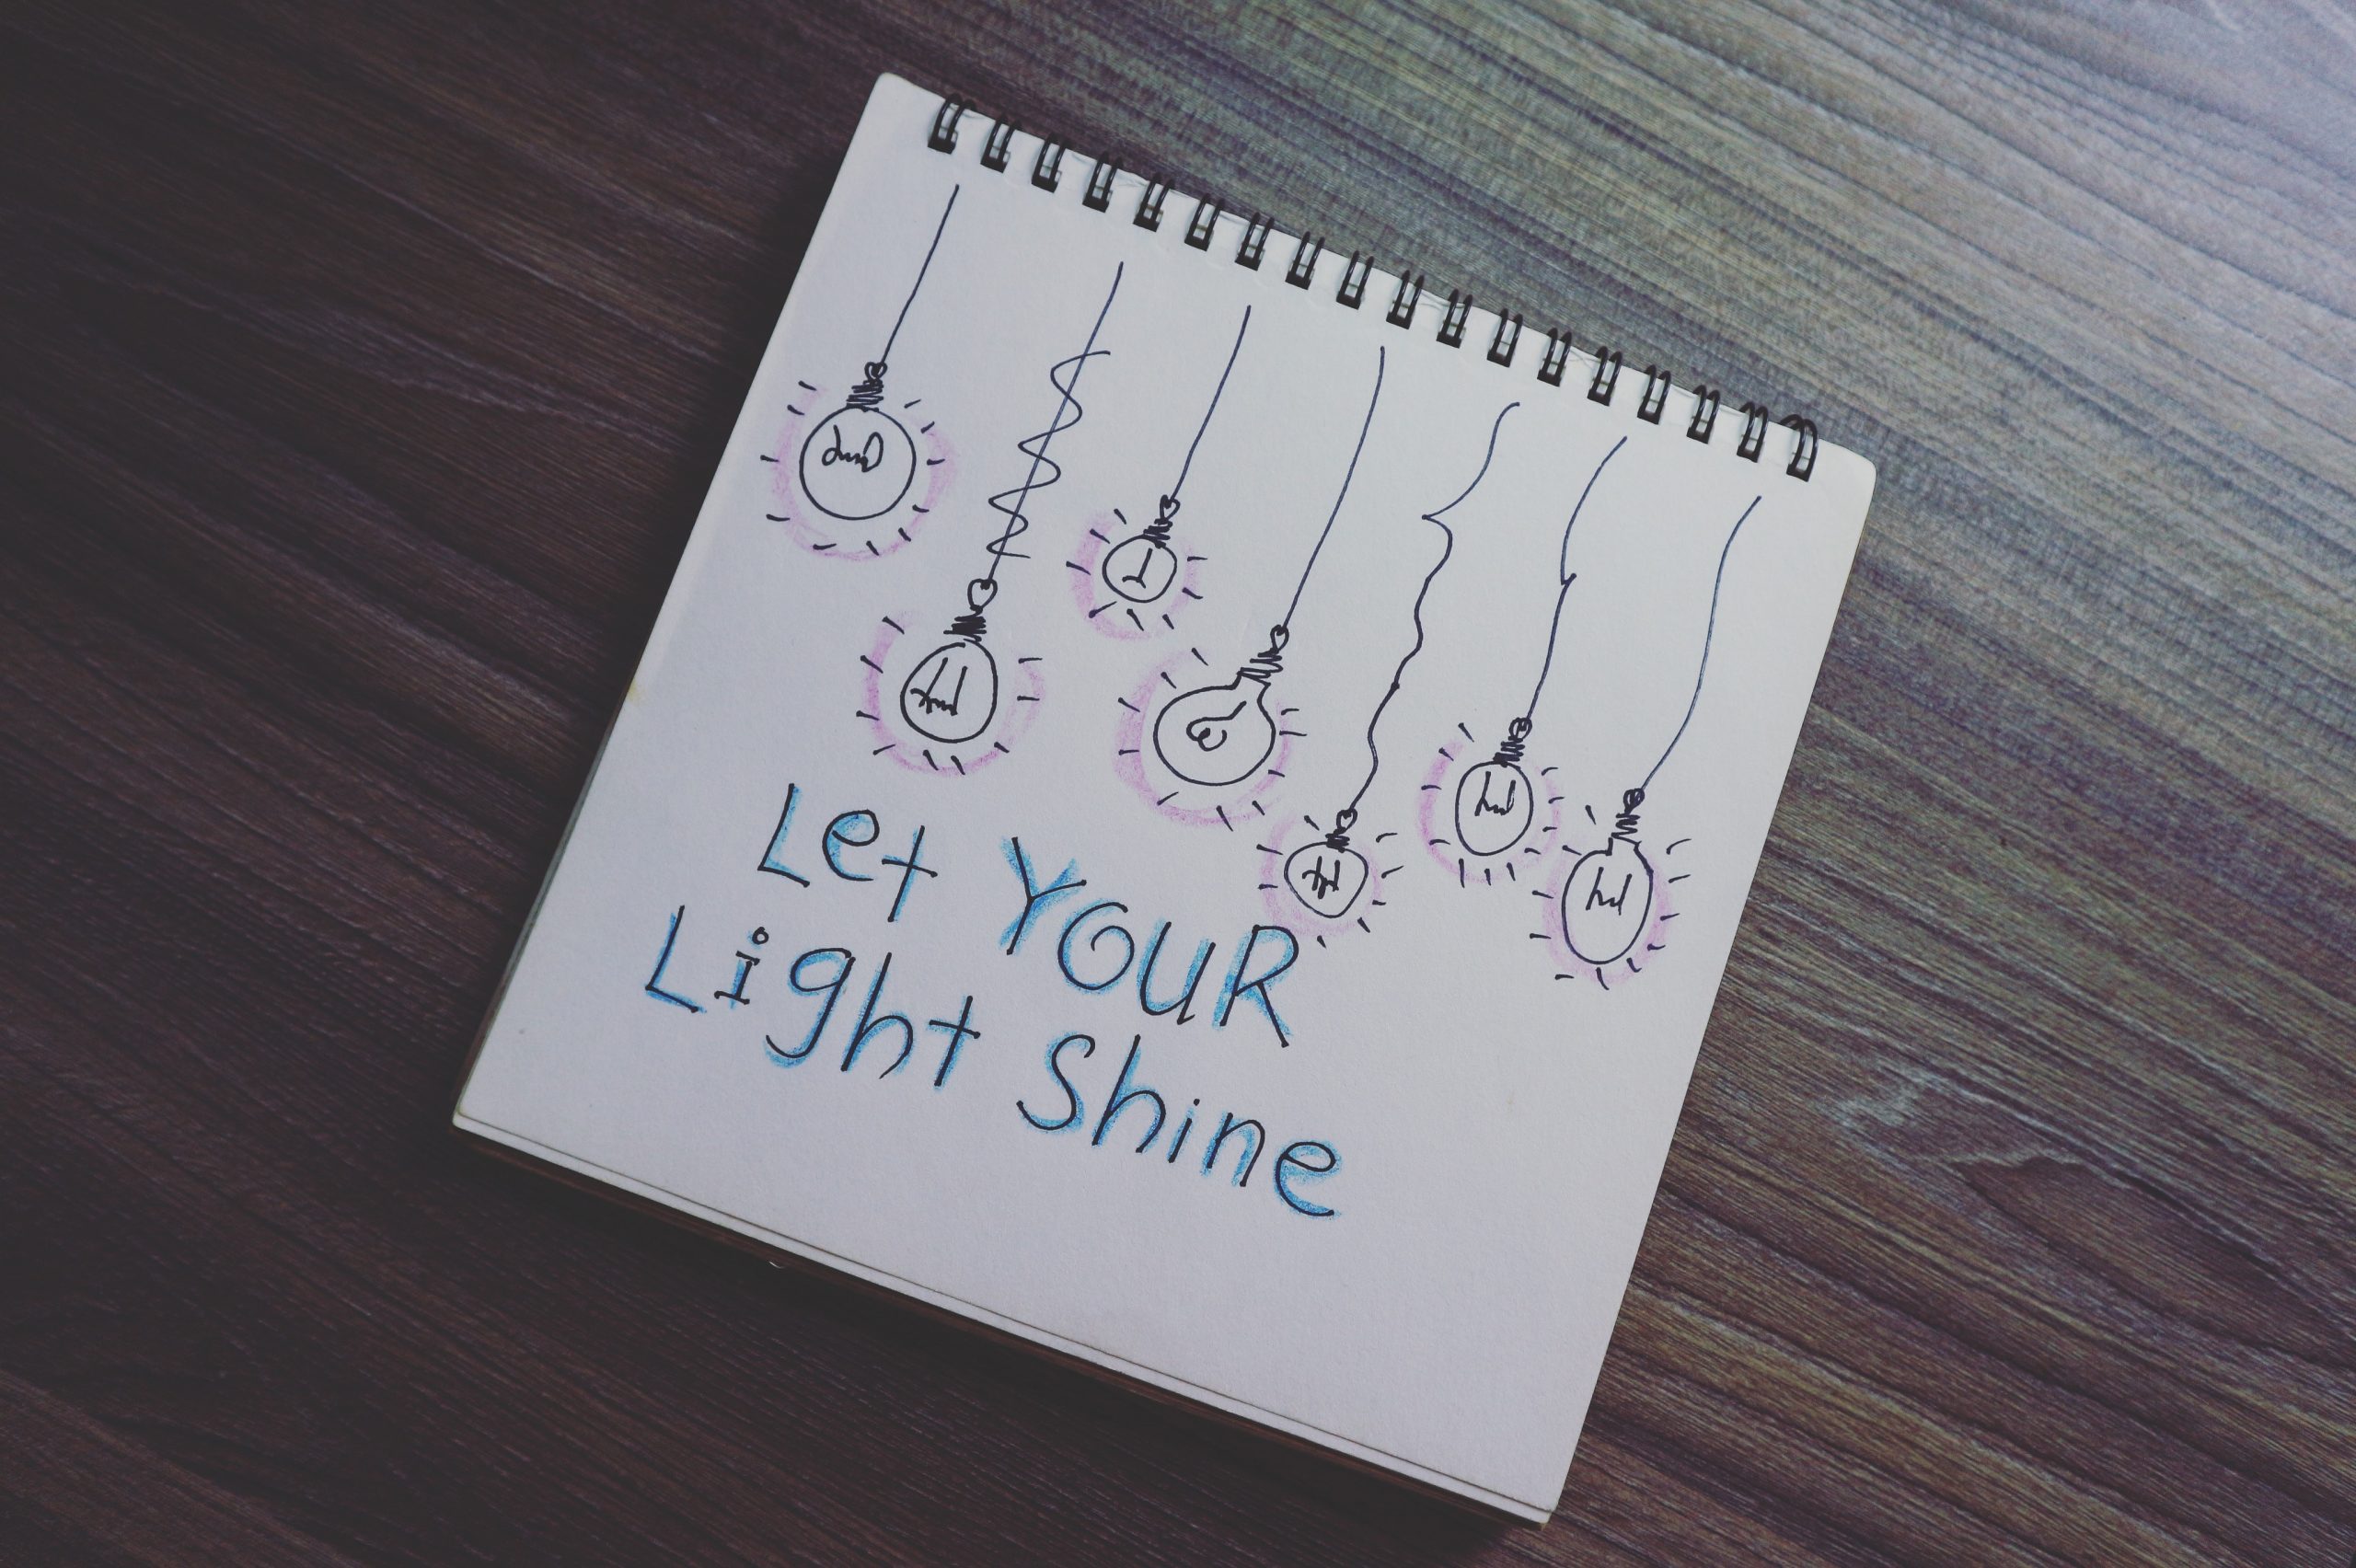 Let YOUR
Light Shine